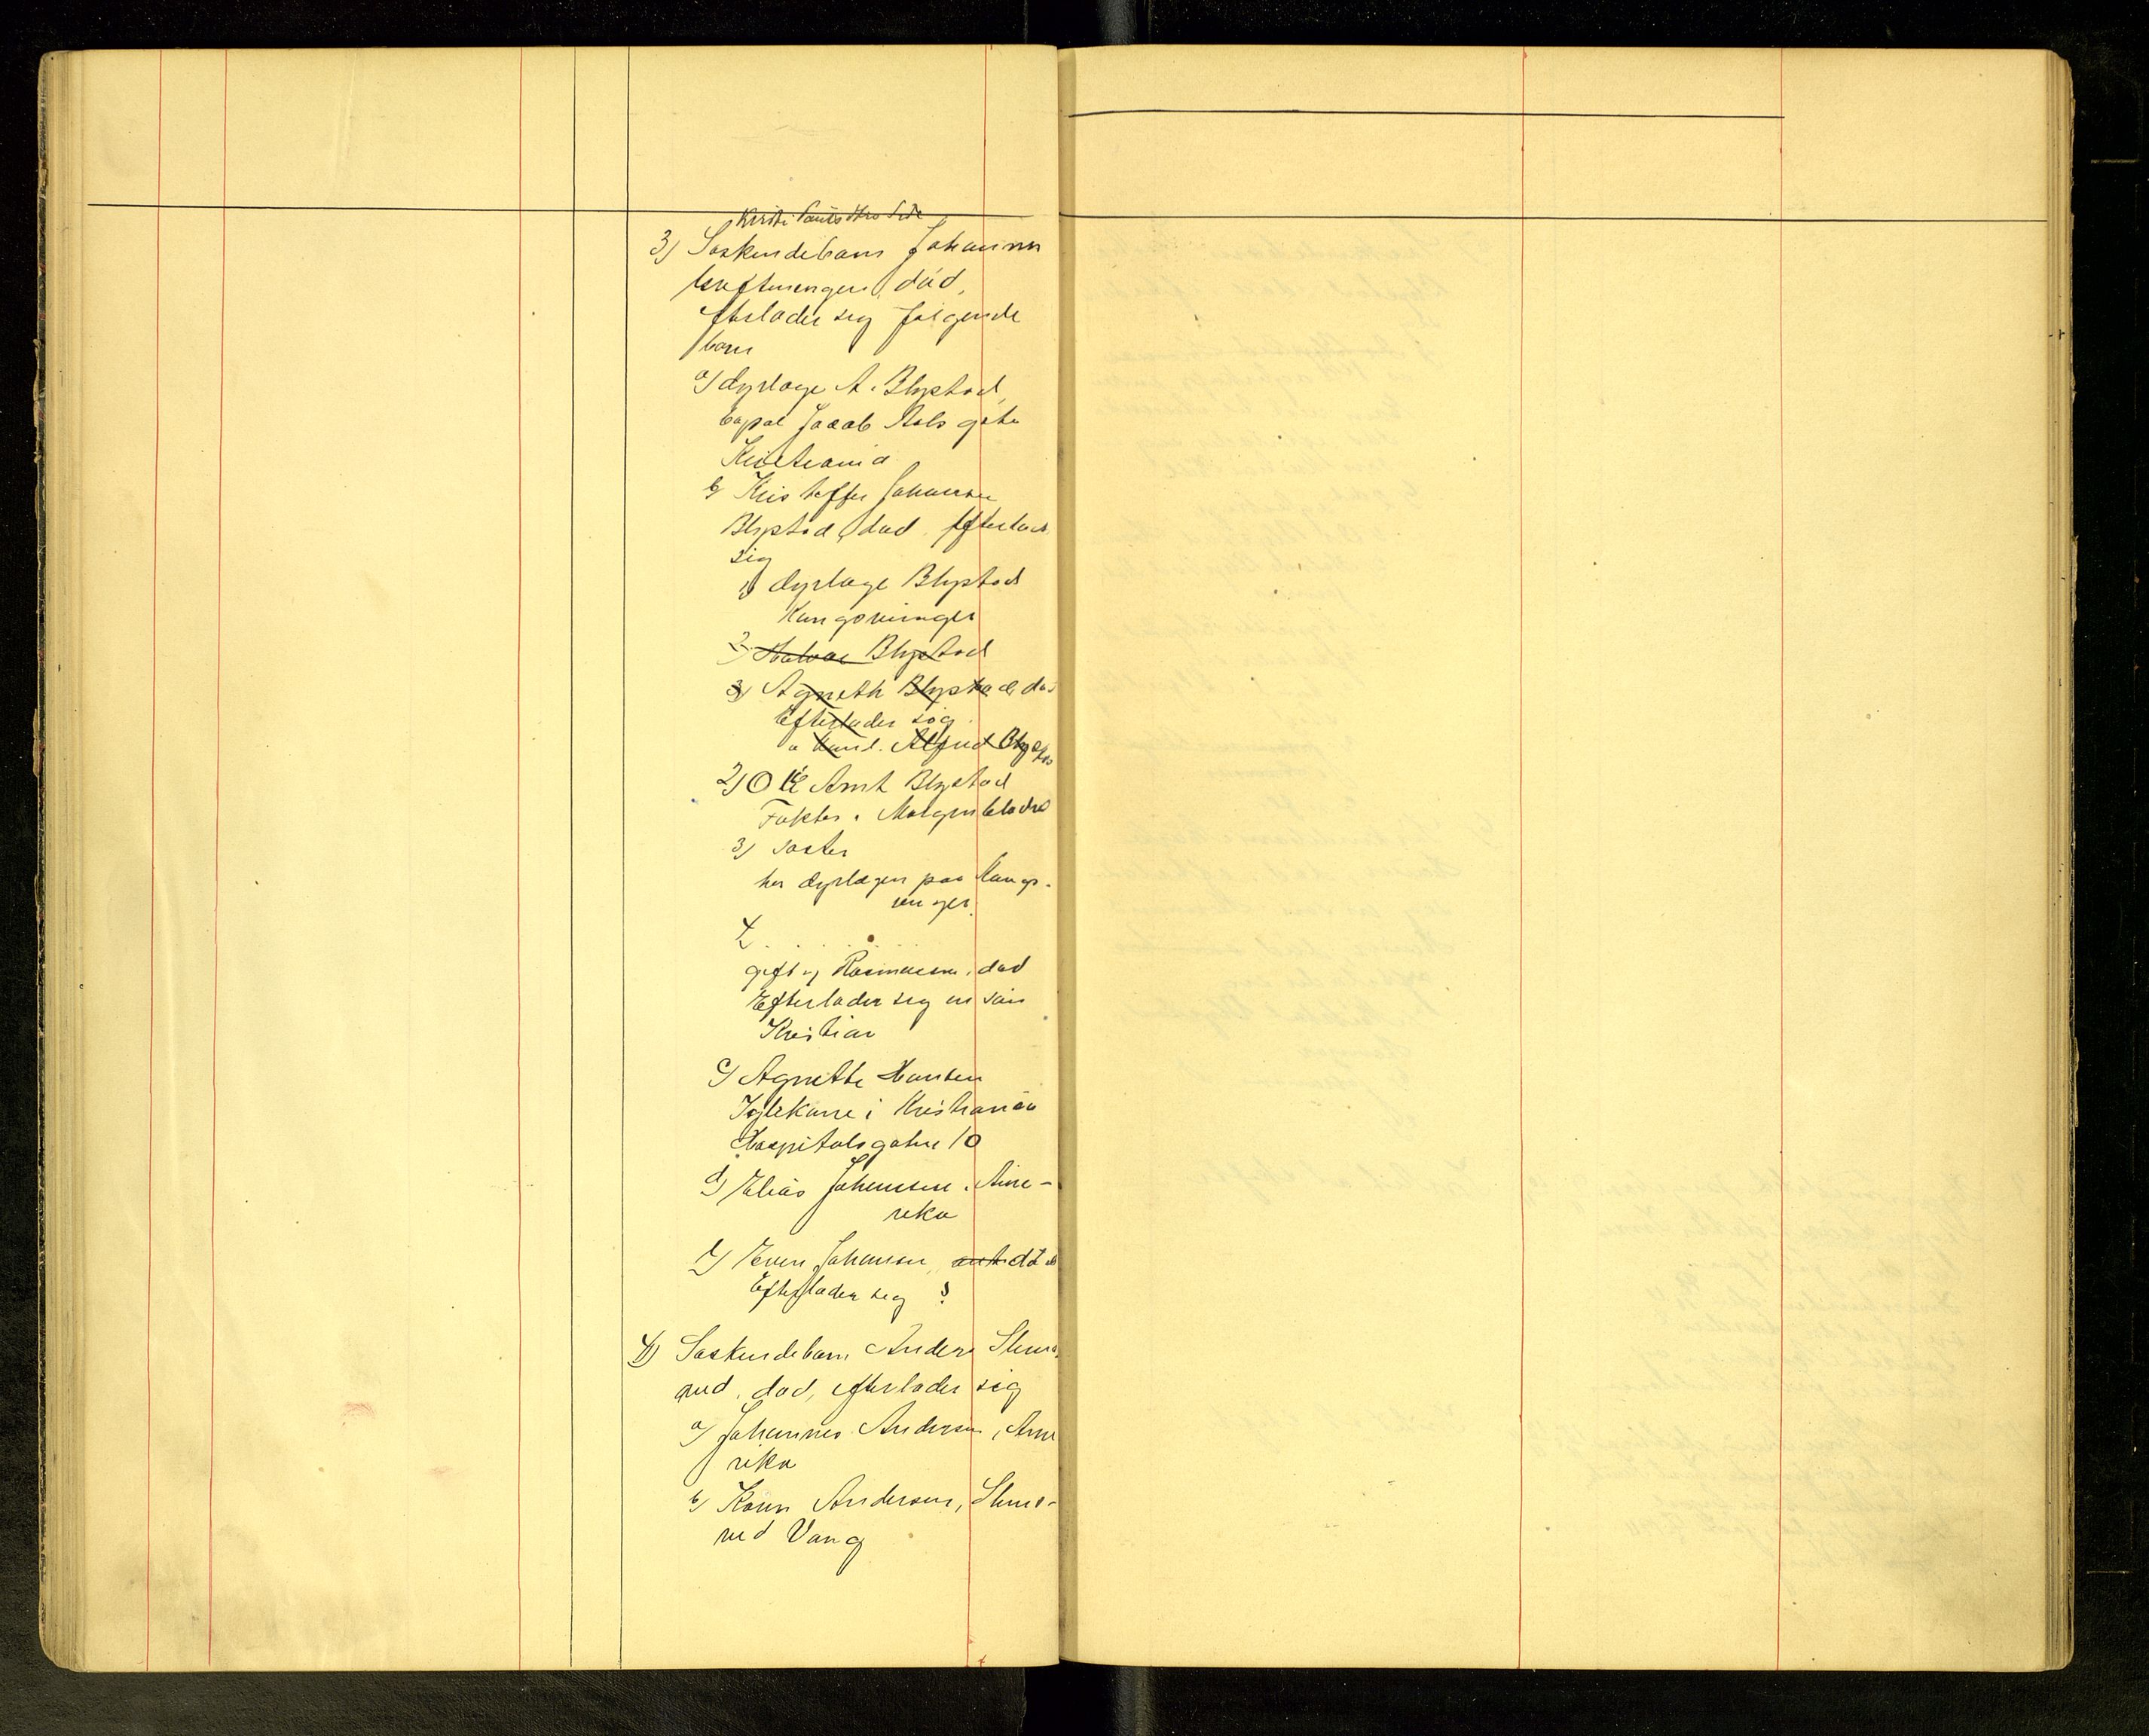 Kirsti Pauls dtrs Side
3) Søskendebarn Johannes
død,
efterlader sig følgende
barn
a) dyrlæge A. Blystad,
Jacob Aals gate
Kristiania
b) Kristoffer Johansen
Blystad, død. Efterlad.
sig
1) dyrlæge Blystad
Kongsvinger
2) Halvor Blystad
3) Agneth Blystad, død
Efterlader sig
a Alfred Blysta
2) Ole Arnt Blystad
Faktor i Morgenbladet
3) søster
hos dyrlægen paa Kongs-
vinger.
4 . . . . . .
gift m/ Rasmussen, død
Efterlader sig en søn
Kristian
c) Agnethe Hansen
i Kristiania
Hospitalsgaten 10
d) Elias Johansen. Ame-
rika
e) Even Johansen, død
Efterlader seg ?
4) Søskendebarn Anders
rud, død, efterlader sig
a) Johannes Andersen, Ame
rika
b) Karen Andersen,
rud Vang